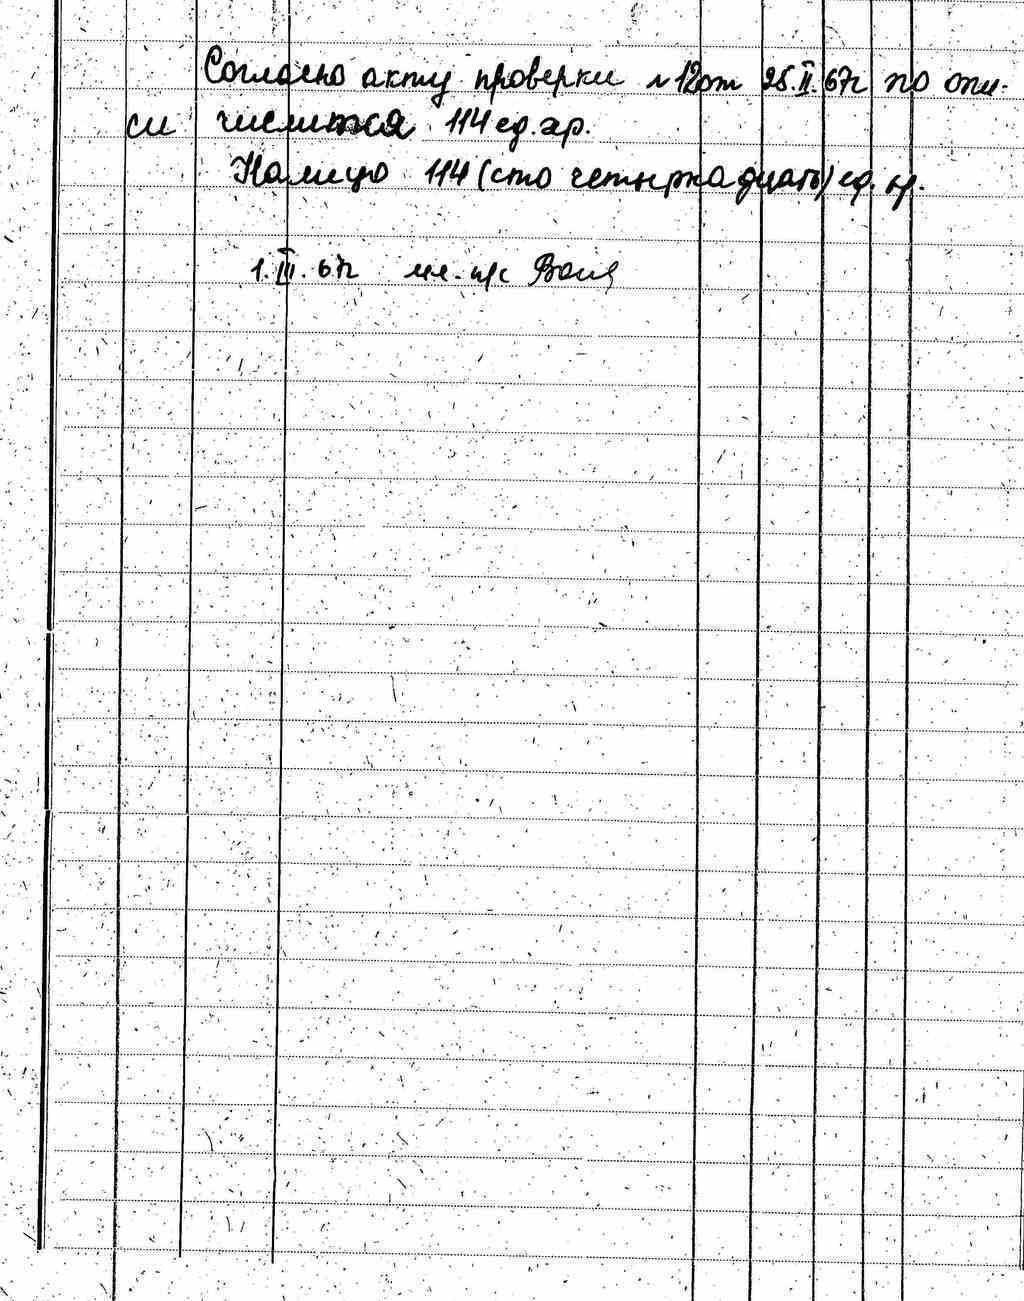 Согласно акту проверки № 12 от 25.II.67г по опи-
си числится 114 ед. хр.
Налицо 114 (сто четырнадцать) ед. хр.
1.III.67г мл. н/с